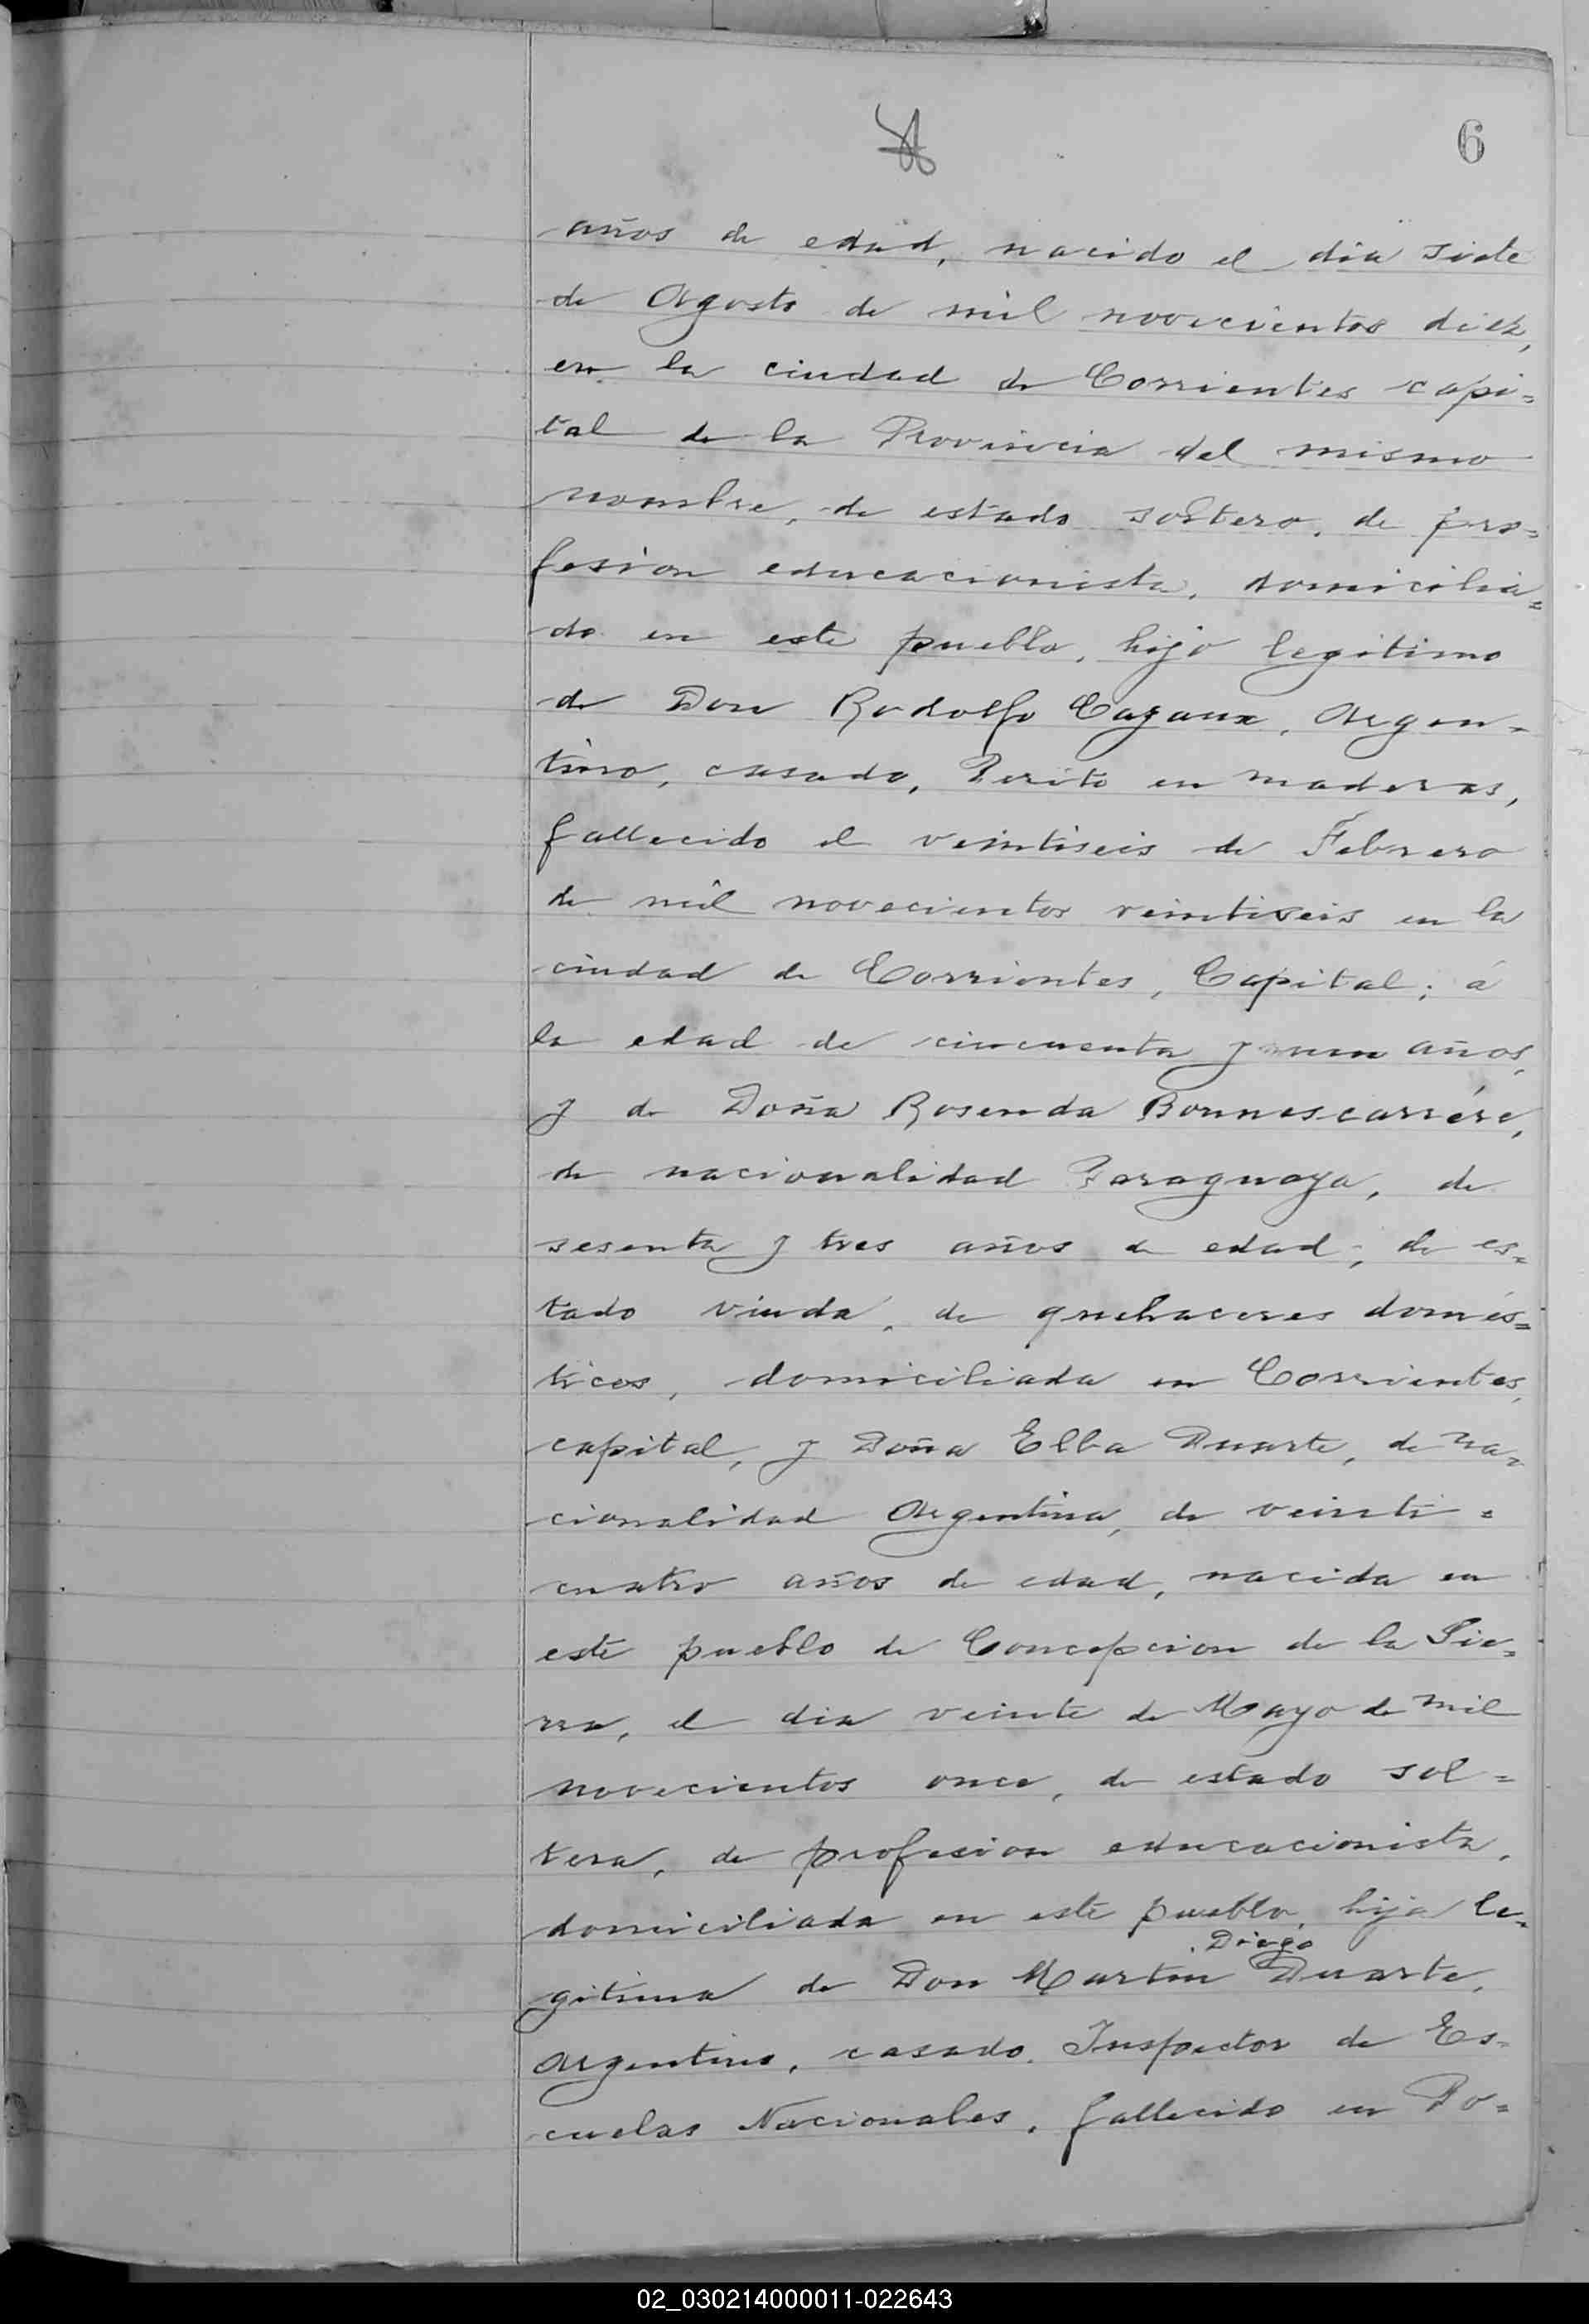 6
años de edad, nacido el dia siete
de Agosto de mil novecientos diez,
en la ciudad de Corrientes capi=
tal de la Provincia del mismo
nombre, de estado soltero, de pro=
fesion educacionista, domicilia=
do en este pueblo, hijo legitimo
de Don Rodolfo Cazaux, Argen=
tino, casado, Perito en maderas,
fallecido el veintiseis de Febrero
de mil novecientos veintiseis en la
ciudad de Corrientes, Capital; á
la edad de cincuenta y un años,
y de Doña Rosenda Bonnescarrére,
de nacionalidad Paraguaya, de
sesenta y tres años de edad, de es=
tado viuda, de quehaceres domés=
ticos, domiciliada en Corrientes,
capital, y Doña Elba Duarte, de na=
cionalidad Argentina, de veinti=
cuatro años de edad, nacida en
este pueblo de Concepcion de la Sie=
rra, el dia veinte de Mayo de mil
novecientos once, de estado sol=
tera, de profesion educacionista,
domiciliada en este pueblo, hija le=
Diego
gitima de Don Martin Duarte,
Argentino, casado, Inspector de Es=
cuelas Nacionales, fallecido en Po=
02_030214000011-022643